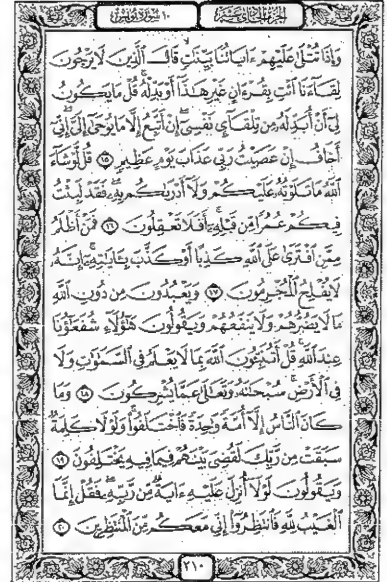 الجزء الحادي عشر
١٠ سورة يونس
وَإِذَا تُتْلَىٰ عَلَيْهِمْ ءَايَاتُنَا بَيِّنَٰتٍ قَالَ ٱلَّذِينَ لَا يَرْجُونَ
لِقَآءَنَا ٱئْتِ بِقُرْءَانٍ غَيْرِ هَٰذَآ أَوْ بَدِّلْهُ قُلْ مَا يَكُونُ
لِىٓ أَنْ أُبَدِّلَهُۥ مِن تِلْقَآئِ نَفْسِىٓ إِنْ أَتَّبِعُ إِلَّا مَا يُوحَىٰٓ إِلَىَّ إِنِّىٓ
أَخَافُ إِنْ عَصَيْتُ رَبِّى عَذَابَ يَوْمٍ عَظِيمٍ ١٥ قُل لَّوْ شَآءَ
ٱللَّهُ مَا تَلَوْتُهُۥ عَلَيْكُمْ وَلَآ أَدْرَىٰكُم بِهِۦ فَقَدْ لَبِثْتُ
فِيكُمْ عُمُرًا مِّن قَبْلِهِۦٓ أَفَلَا تَعْقِلُونَ ١٦ فَمَنْ أَظْلَمُ
مِمَّنِ ٱفْتَرَىٰ عَلَى ٱللَّهِ كَذِبًا أَوْ كَذَّبَ بِـَٔايَٰتِهِۦٓ إِنَّهُۥ
لَا يُفْلِحُ ٱلْمُجْرِمُونَ ١٧ وَيَعْبُدُونَ مِن دُونِ ٱللَّهِ
مَا لَا يَضُرُّهُمْ وَلَا يَنفَعُهُمْ وَيَقُولُونَ هَٰٓؤُلَآءِ شُفَعَٰٓؤُنَا
عِندَ ٱللَّهِ قُلْ أَتُنَبِّـُٔونَ ٱللَّهَ بِمَا لَا يَعْلَمُ فِى ٱلسَّمَٰوَٰتِ وَلَا
فِى ٱلْأَرْضِ سُبْحَٰنَهُۥ وَتَعَٰلَىٰ عَمَّا يُشْرِكُونَ ١٨ وَمَا
كَانَ ٱلنَّاسُ إِلَّآ أُمَّةً وَٰحِدَةً فَٱخْتَلَفُوا۟ وَلَوْلَا كَلِمَةٌ
سَبَقَتْ مِن رَّبِّكَ لَقُضِىَ بَيْنَهُمْ فِيمَا فِيهِ يَخْتَلِفُونَ ١٩
وَيَقُولُونَ لَوْلَآ أُنزِلَ عَلَيْهِ ءَايَةٌ مِّن رَّبِّهِۦ فَقُلْ إِنَّمَا
ٱلْغَيْبُ لِلَّهِ فَٱنتَظِرُوٓا۟ إِنِّى مَعَكُم مِّنَ ٱلْمُنتَظِرِينَ ٢٠
٢١٠